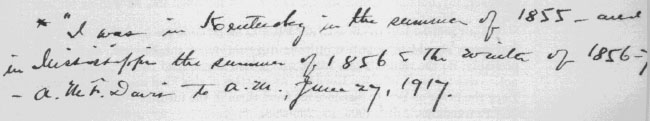 * "I was in Kentucky in the summer of 1855 – and
in Mississippi the summer of 1856 & the winter of 1856-7
– A. McF. Davis to A.M., June 27, 1917.